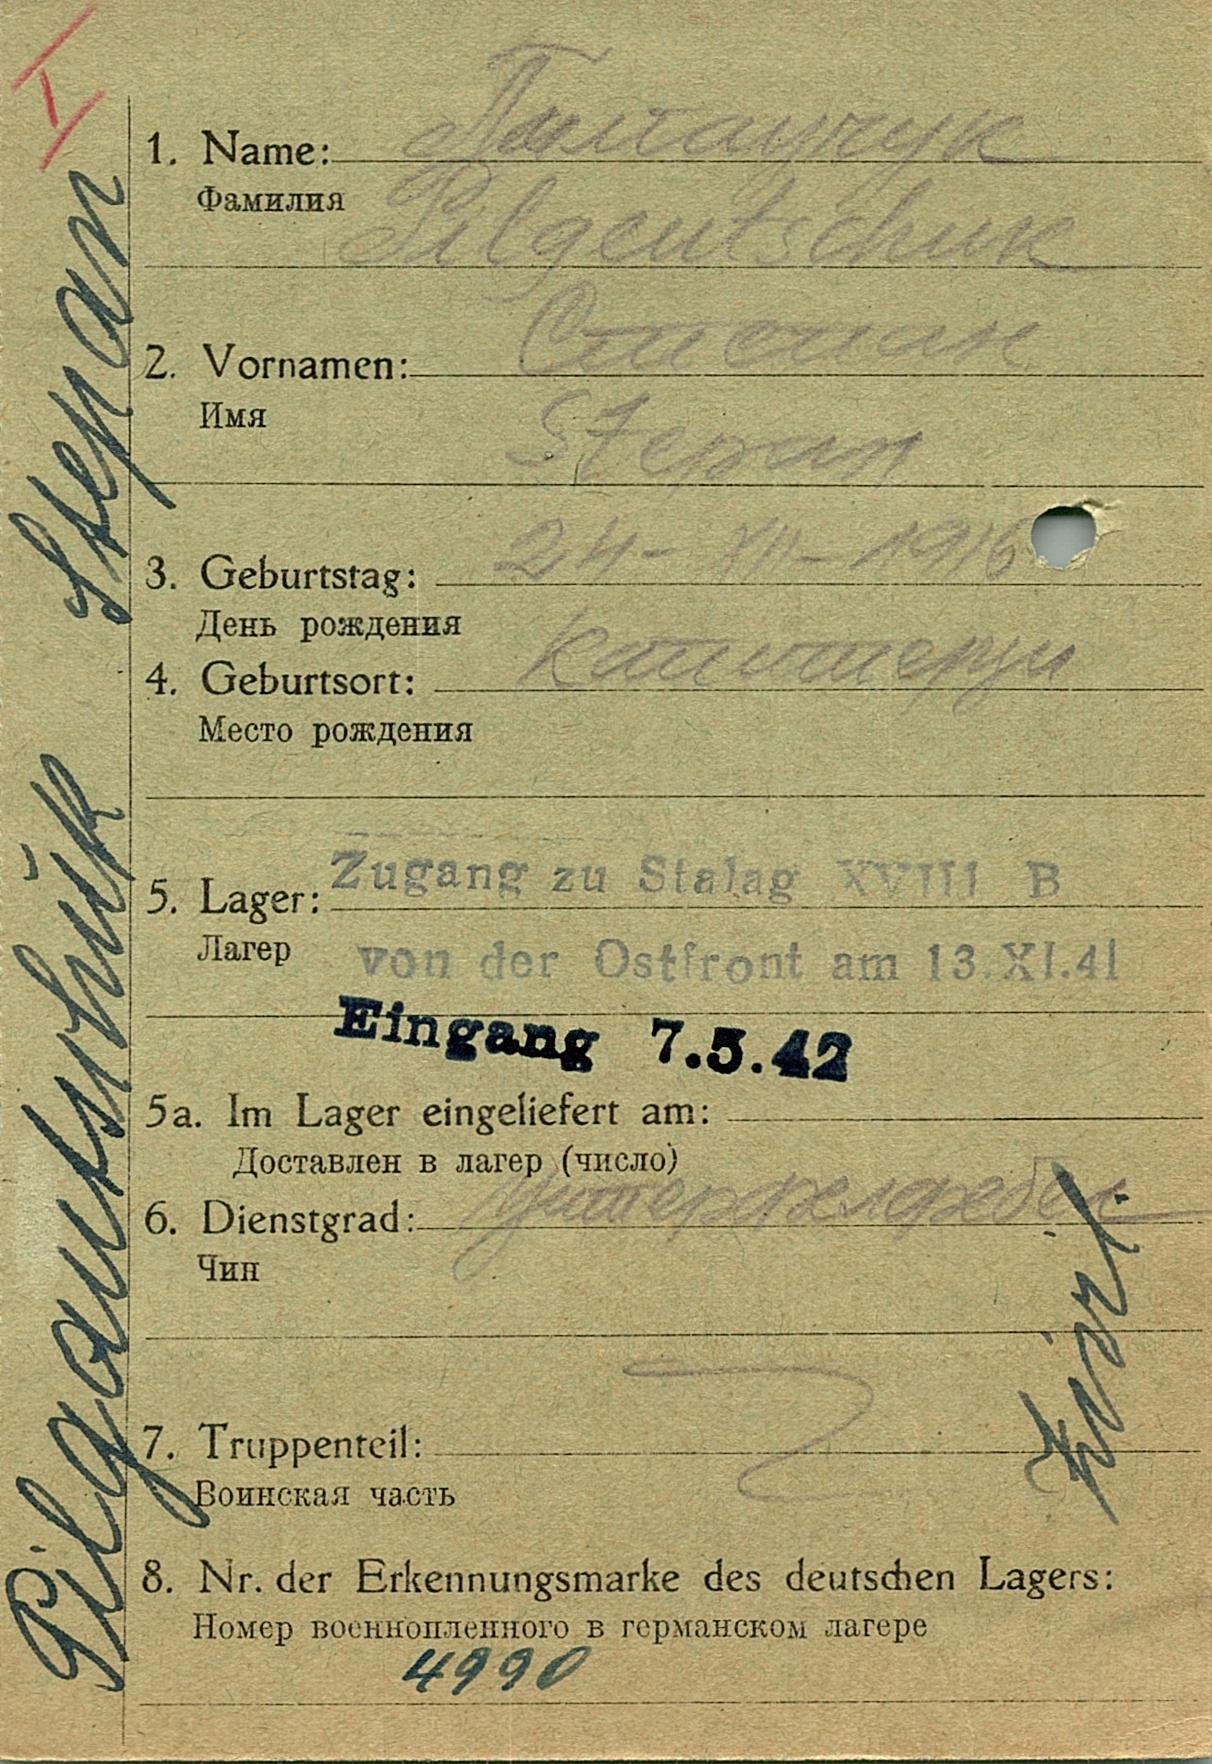 I
1. Name:
Фамилия
Pilgeutschuk
2. Vornamen: Степан
Имя
Stepan
3. Geburtstag: 24-XII-1916
День рождения
4. Geburtsort:
Место рождения
5. Lager: Zugang zu Stalag XVIII B
Лагер von der Ostfront am 13.XI.41
Eingang 7.5.42
5a. Im Lager eingeliefert am:
Доставлен в лагер (число)
6. Dienstgrad:
Чин
7. Truppenteil:
Воинская часть
8. Nr. der Erkennungsmarke des deutschen Lagers:
Номер военнопленного в германском лагере
4990
Pilgautschuk Stepan